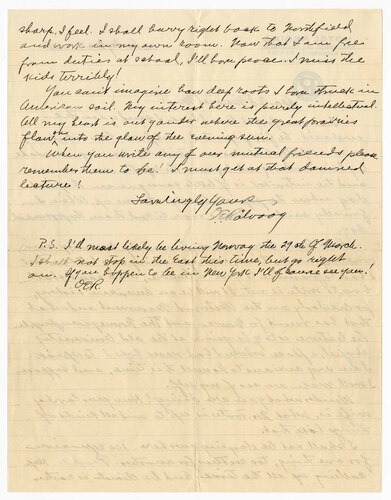 sharp, I feel. I shall hurry right back to Northfield
and work in my own room. Now that I am free
from duties at school, I'll have peace. I miss the
kids terribly!
You can't imagine how deep roots I have struck in
American soil. My interest here is purely intellectual.
All my heart is out yonder where the great prairies
flow into the glow of the evening sun.
When you write any of our mutual friends please
remember them to me! I must get at that damned
lecture!
Lovingly Yours
P.S. I'd most likely be leaving Norway the 29 de of March.
I shall not stop in the East this time, but go right
on. If you happen to be in New York I'll of course see you!
OER.